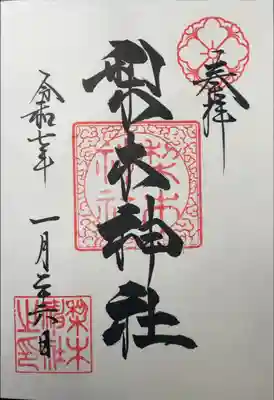 奉拝
梨木神社
梨木
神社
令和七年
一月二十六日
梨木
神社
之印